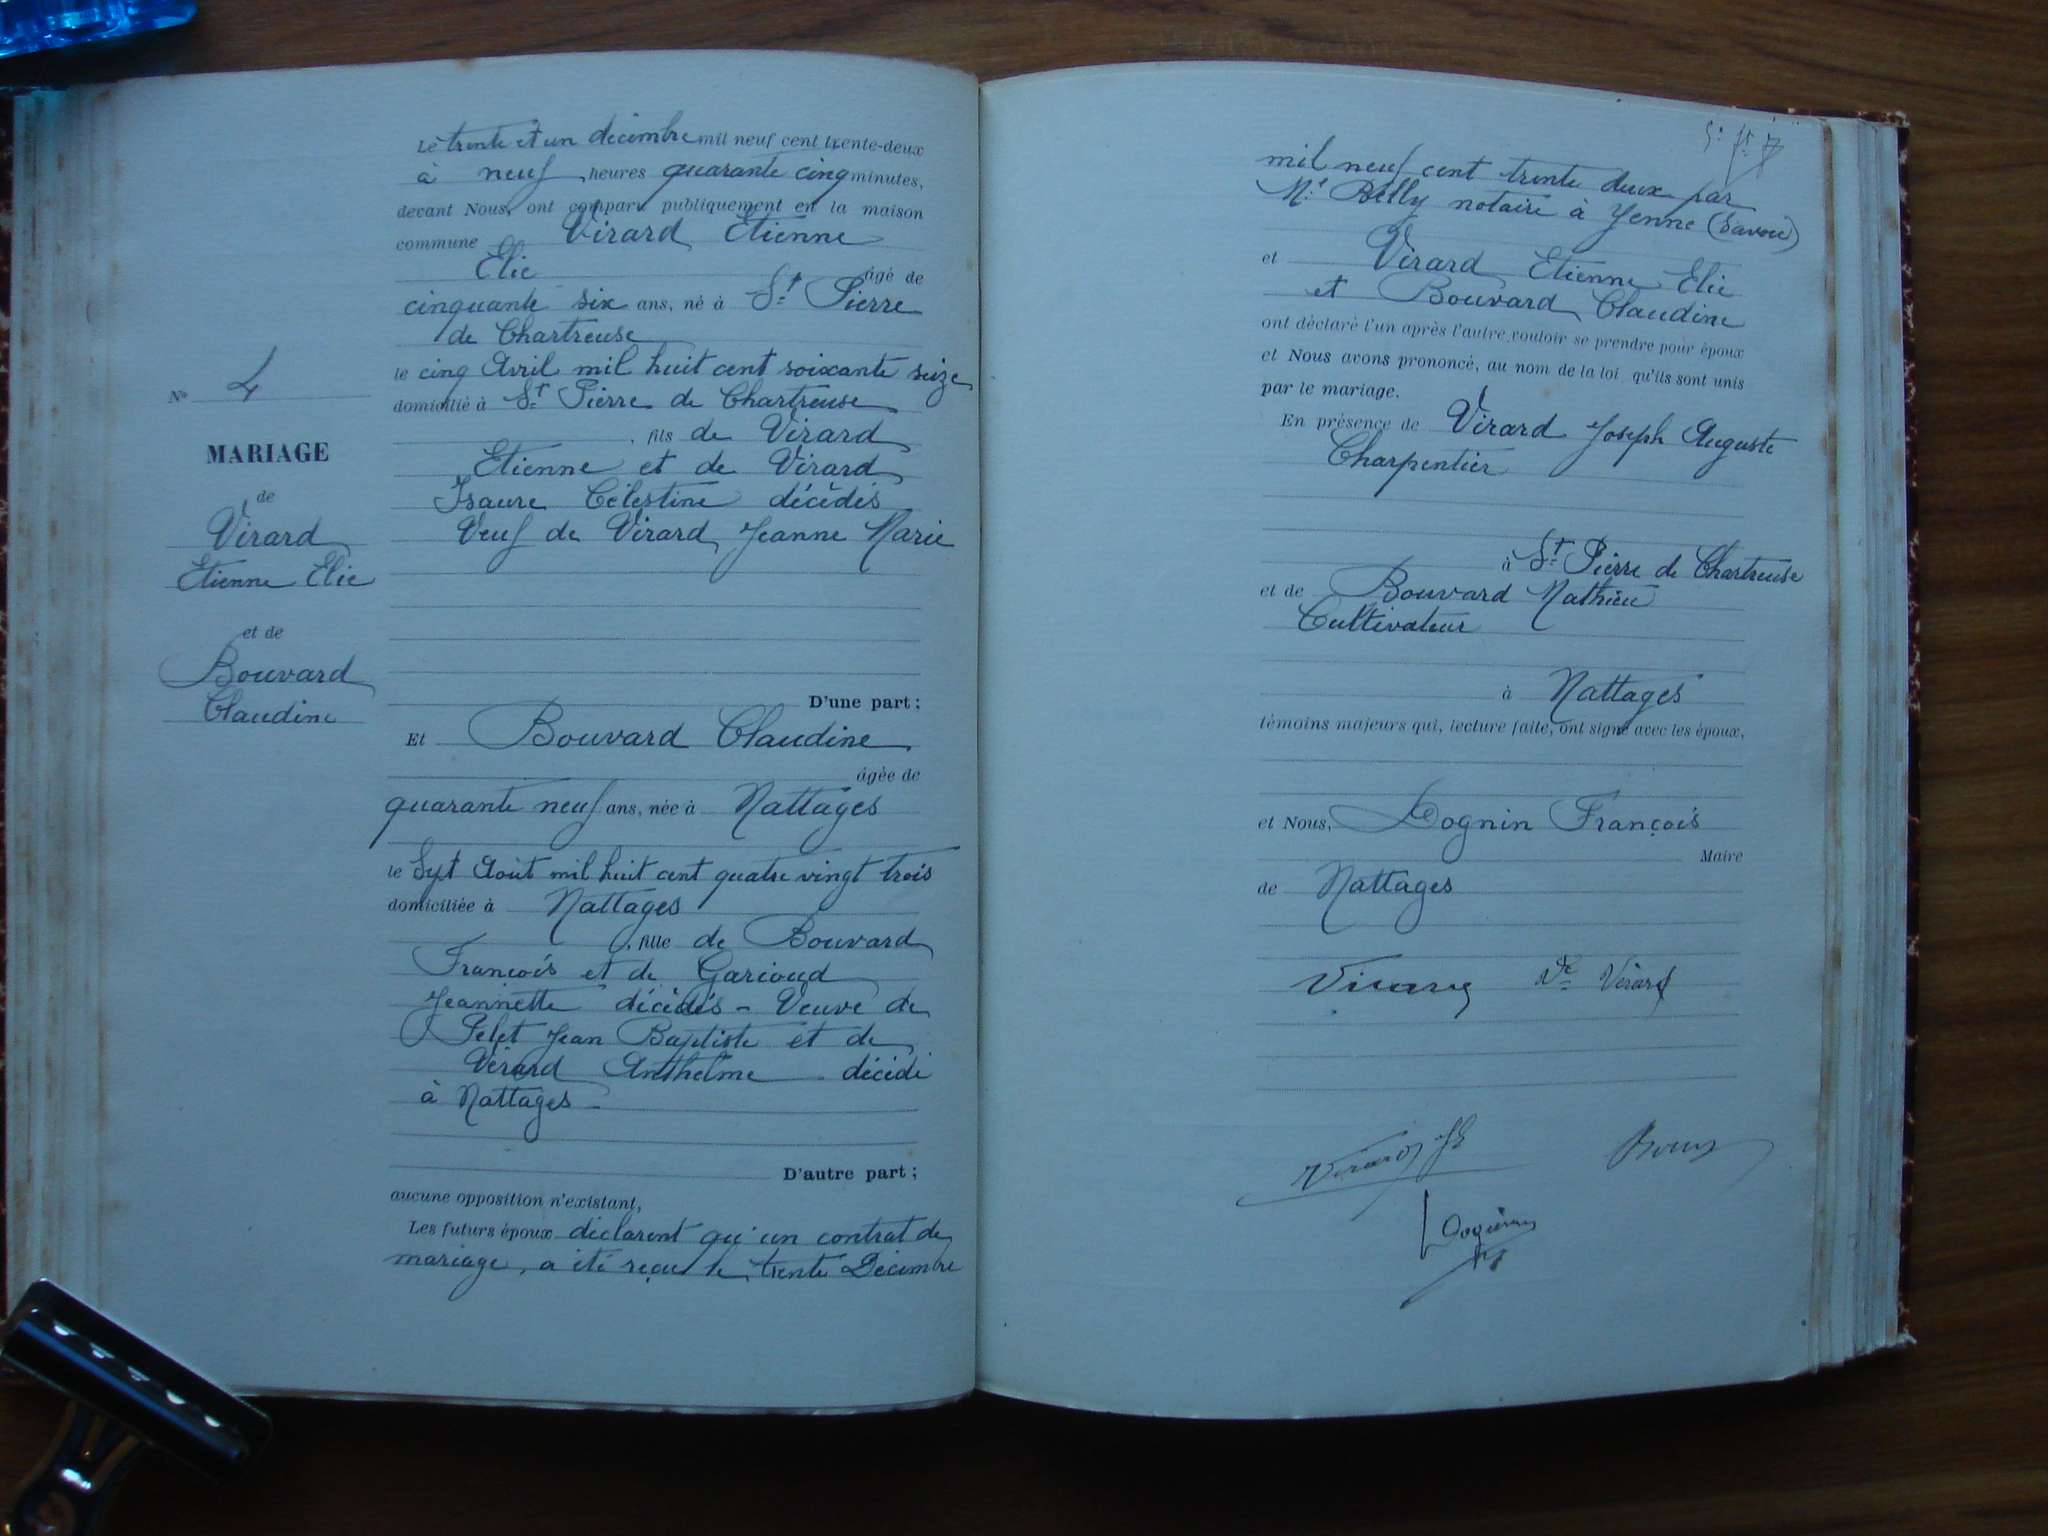 Le trente et un décembre mil neuf cent trente-deux
à neuf heures quarante cinq minutes,
devant Nous, ont comparu publiquement en la maison
commune Virard Etienne
Elie âgé de
cinquante six ans, né à St Pierre
de Chartreuse
le cinq Avril mil huit cent soixante seize
domicilié à St Pierre de Chartreuse
, fils de Virard
Etienne et de Virard
Isaure Célestine décédés
Veuf de Virard Jeanne Marie
N° 4
MARIAGE
de
Virard
Etienne Elie
et de
Bouvard
Claudine
D'une part ;
Et Bouvard Claudine
âgée de
quarante neuf ans, née à Nattages
le Sept Août mil huit cent quatre vingt trois
domiciliée à Nattages
, fille de Bouvard
François et de Garioud
Jeannette décédés - Veuve de
Pelet Jean Baptiste et de
Virard Anthelme décédé
à Nattages -
D'autre part ;
aucune opposition n'existant,
Les futurs époux déclarent qu'un contrat de
mariage, a été reçu le trente Décembre
mil neuf cent trente deux par
Me Belly notaire à Yenne (Savoie)
et Virard Etienne Elie
et Bouvard Claudine
ont déclaré l'un après l'autre vouloir se prendre pour époux
et Nous avons prononcé, au nom de la loi qu'ils sont unis
par le mariage.
En présence de Virard Joseph Auguste
Charpentier
à St Pierre de Chartreuse
et de Bouvard Mathieu
Cultivateur
à Nattages
témoins majeurs qui, lecture faite, ont signé avec les époux,
et Nous, Dognin François
Maire
de Nattages
Virard Ve Virard
Virard